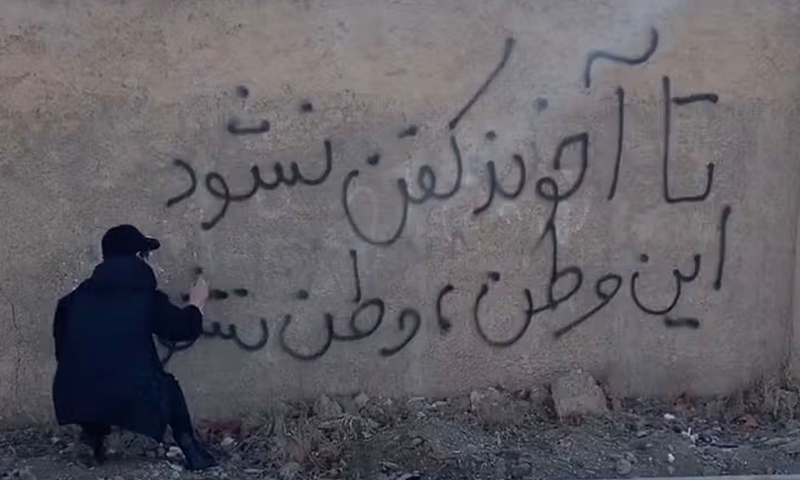 تا آخوند کفن نشود
این وطن، وطن نشو